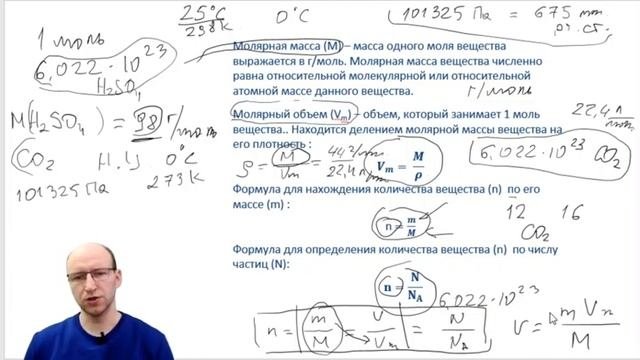 25°C
298K
0°C
101325 Па = 675 мм рт. ст.
1 моль
6,022 · 10^23
H2SO4
Молярная масса (М) – масса одного моля вещества
выражается в г/моль. Молярная масса вещества численно
равна относительной молекулярной или относительной
атомной массе данного вещества.
г/моль
M(H2SO4) = 98 г/моль
Молярный объем (Vm) – объем, который занимает 1 моль
вещества.. Находится делением молярной массы вещества на
его плотность :
22,4 л/моль
CO2 Н.У 0°C
101325 Па 273К
ρ = M/Vm = 44 г/моль / 22,4 л/моль
Vm = M/ρ
6,022·10^23 CO2
Формула для нахождения количества вещества (n) по его
массе (m) :
n = m/M
12 16
CO2
Формула для определения количества вещества (n) по числу
частиц (N):
n = N/NA
6,022·10^23
n = m/M = V/Vm = N/NA
V = m Vm / M